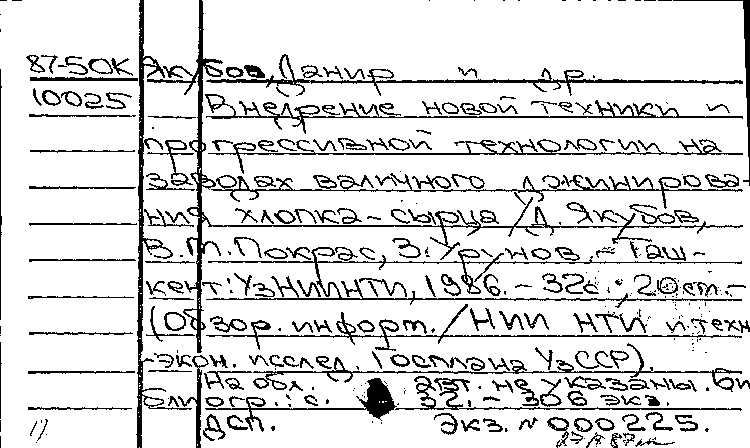 87-50К Якубов, Данир и др.
10025 Внедрение новой техники и
прогрессивной технологии на
заводах валичного джинирова-
ния хлопка-сырца / Д. Якубов,
В.М. Покрас, З. Урунов. - Таш-
кент: УзНИИНТИ, 1986. - 32с.; 20см. -
(Обзор. информ. / НИИ НТИ и техн
-экон. исслед. Госплана УзССР).
На обл. авт. не указаны. Би
блиогр.: с. 32. - 306 экз.
ДСП. Экз. N 000225.